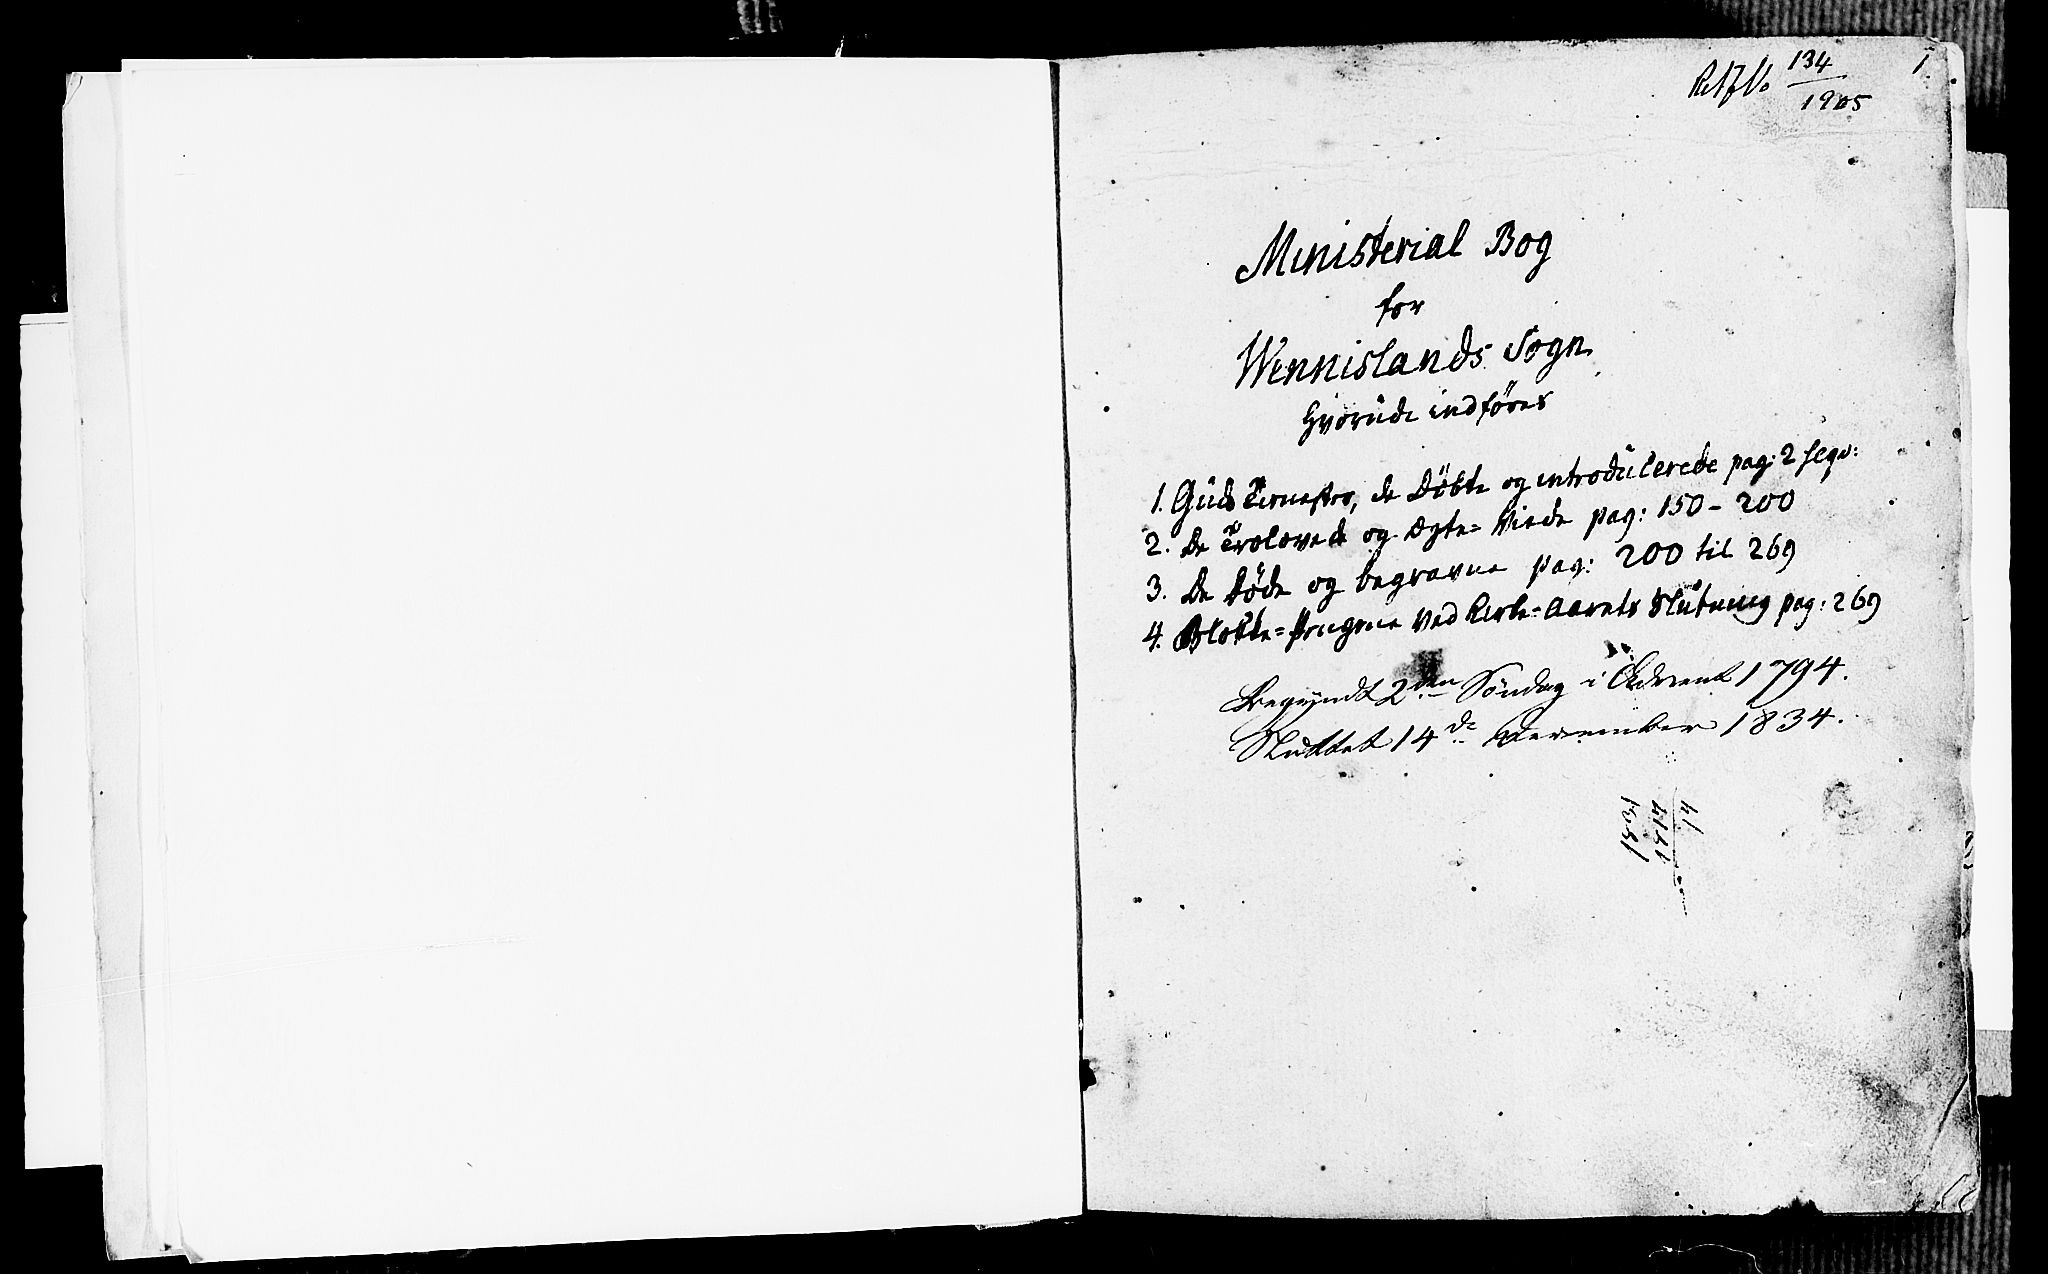 134
1905
1.
Ministerial Bog
for
Wennislands Sogn
hvorudi indföres
1. Guds Tienester, de Döbte og introducerede pag: 2 seqv:
2. De Trolovede og Ægte= Viede pag: 150 - 200
3. De Döde og begravne pag: 200 til 269
4. Blokke= Pengene ved Kirke= Aarets Slutning pag: 269
Begyndt 2den Söndag i Advent 1794.
Sluttet 14de December 1834.